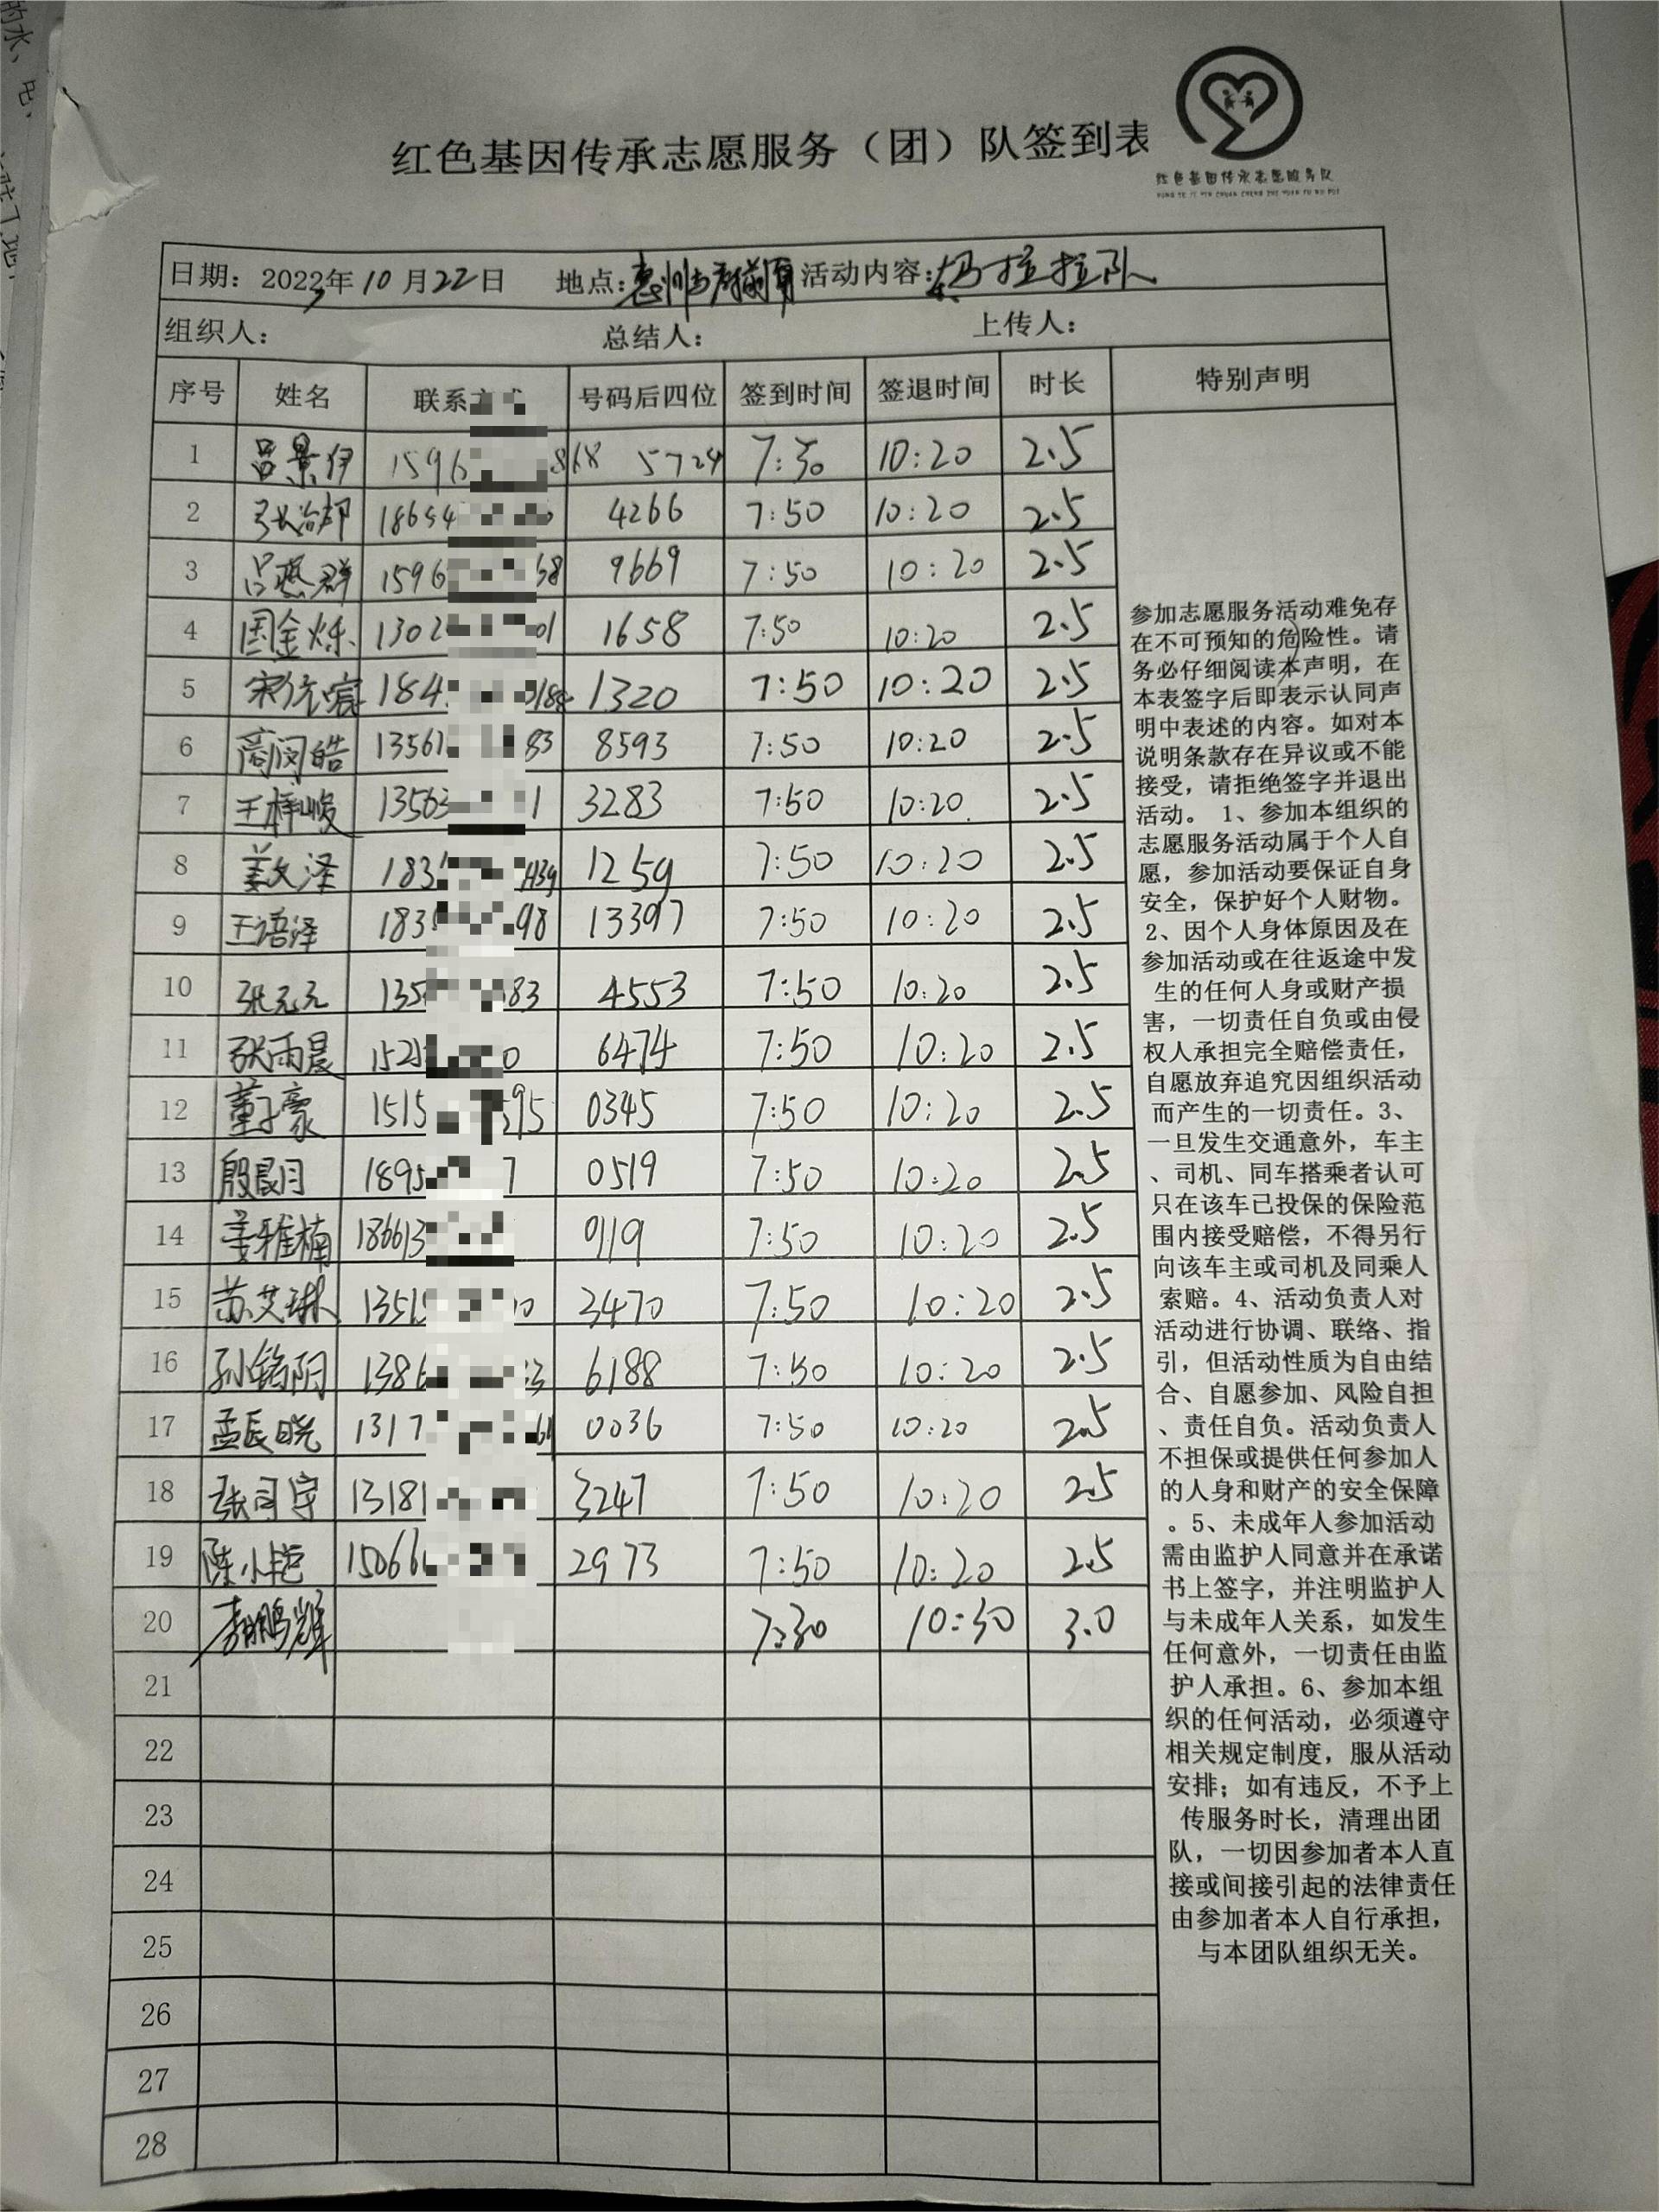 红色基因传承志愿服务（团）队签到表
红色基因传承志愿服务队
HONG SE JI YIN CHUAN CHENG ZHI YUAN FU WU DUI
日期：2022年10月22日 地点： 活动内容： 拉拉队
组织人： 总结人： 上传人：
序号 姓名 联系方式 号码后四位 签到时间 签退时间 时长 特别声明
1 吕景伊 1596 868 5724 7:30 10:20 2.5
2 18654 4266 7:50 10:20 2.5
3 吕燕群 1596 68 9669 7:50 10:20 2.5
4 国金烁 1302 01 1658 7:50 10:20 2.5
5 184 1320 7:50 10:20 2.5
6 13561 83 8593 7:50 10:20 2.5
7 王梓峻 13563 1 3283 7:50 10:20 2.5
8 姜文泽 183 439 1259 7:50 10:20 2.5
9 王语泽 183 98 13397 7:50 10:20 2.5
10 张元元 135 83 4553 7:50 10:20 2.5
11 张雨晨 152 0 6474 7:50 10:20 2.5
12 董子豪 1515 595 0345 7:50 10:20 2.5
13 殷晨月 1895 7 0519 7:50 10:20 2.5
14 姜雅楠 186613 9119 7:50 10:20 2.5
15 苏艾琳 13515 10 3470 7:50 10:20 2.5
16 孙铭阳 1386 33 6188 7:50 10:20 2.5
17 孟辰晓 1317 0036 7:50 10:20 2.5
18 张司宇 13181 3247 7:50 10:20 2.5
19 陈小艳 15066 2973 7:50 10:20 2.5
20 7:30 10:30 3.0
21
22
23
24
25
26
27
28
参加志愿服务活动难免存
在不可预知的危险性。请
务必仔细阅读本声明，在
本表签字后即表示认同声
明中表述的内容。如对本
说明条款存在异议或不能
接受，请拒绝签字并退出
活动。 1、参加本组织的
志愿服务活动属于个人自
愿，参加活动要保证自身
安全，保护好个人财物。
2、因个人身体原因及在
参加活动或在往返途中发
生的任何人身或财产损
害，一切责任自负或由侵
权人承担完全赔偿责任，
自愿放弃追究因组织活动
而产生的一切责任。3、
一旦发生交通意外，车主
、司机、同车搭乘者认可
只在该车已投保的保险范
围内接受赔偿，不得另行
向该车主或司机及同乘人
索赔。4、活动负责人对
活动进行协调、联络、指
引，但活动性质为自由结
合、自愿参加、风险自担
、责任自负。活动负责人
不担保或提供任何参加人
的人身和财产的安全保障
。5、未成年人参加活动
需由监护人同意并在承诺
书上签字，并注明监护人
与未成年人关系，如发生
任何意外，一切责任由监
护人承担。6、参加本组
织的任何活动，必须遵守
相关规定制度，服从活动
安排；如有违反，不予上
传服务时长，清理出团
队，一切因参加者本人直
接或间接引起的法律责任
由参加者本人自行承担，
与本团队组织无关。